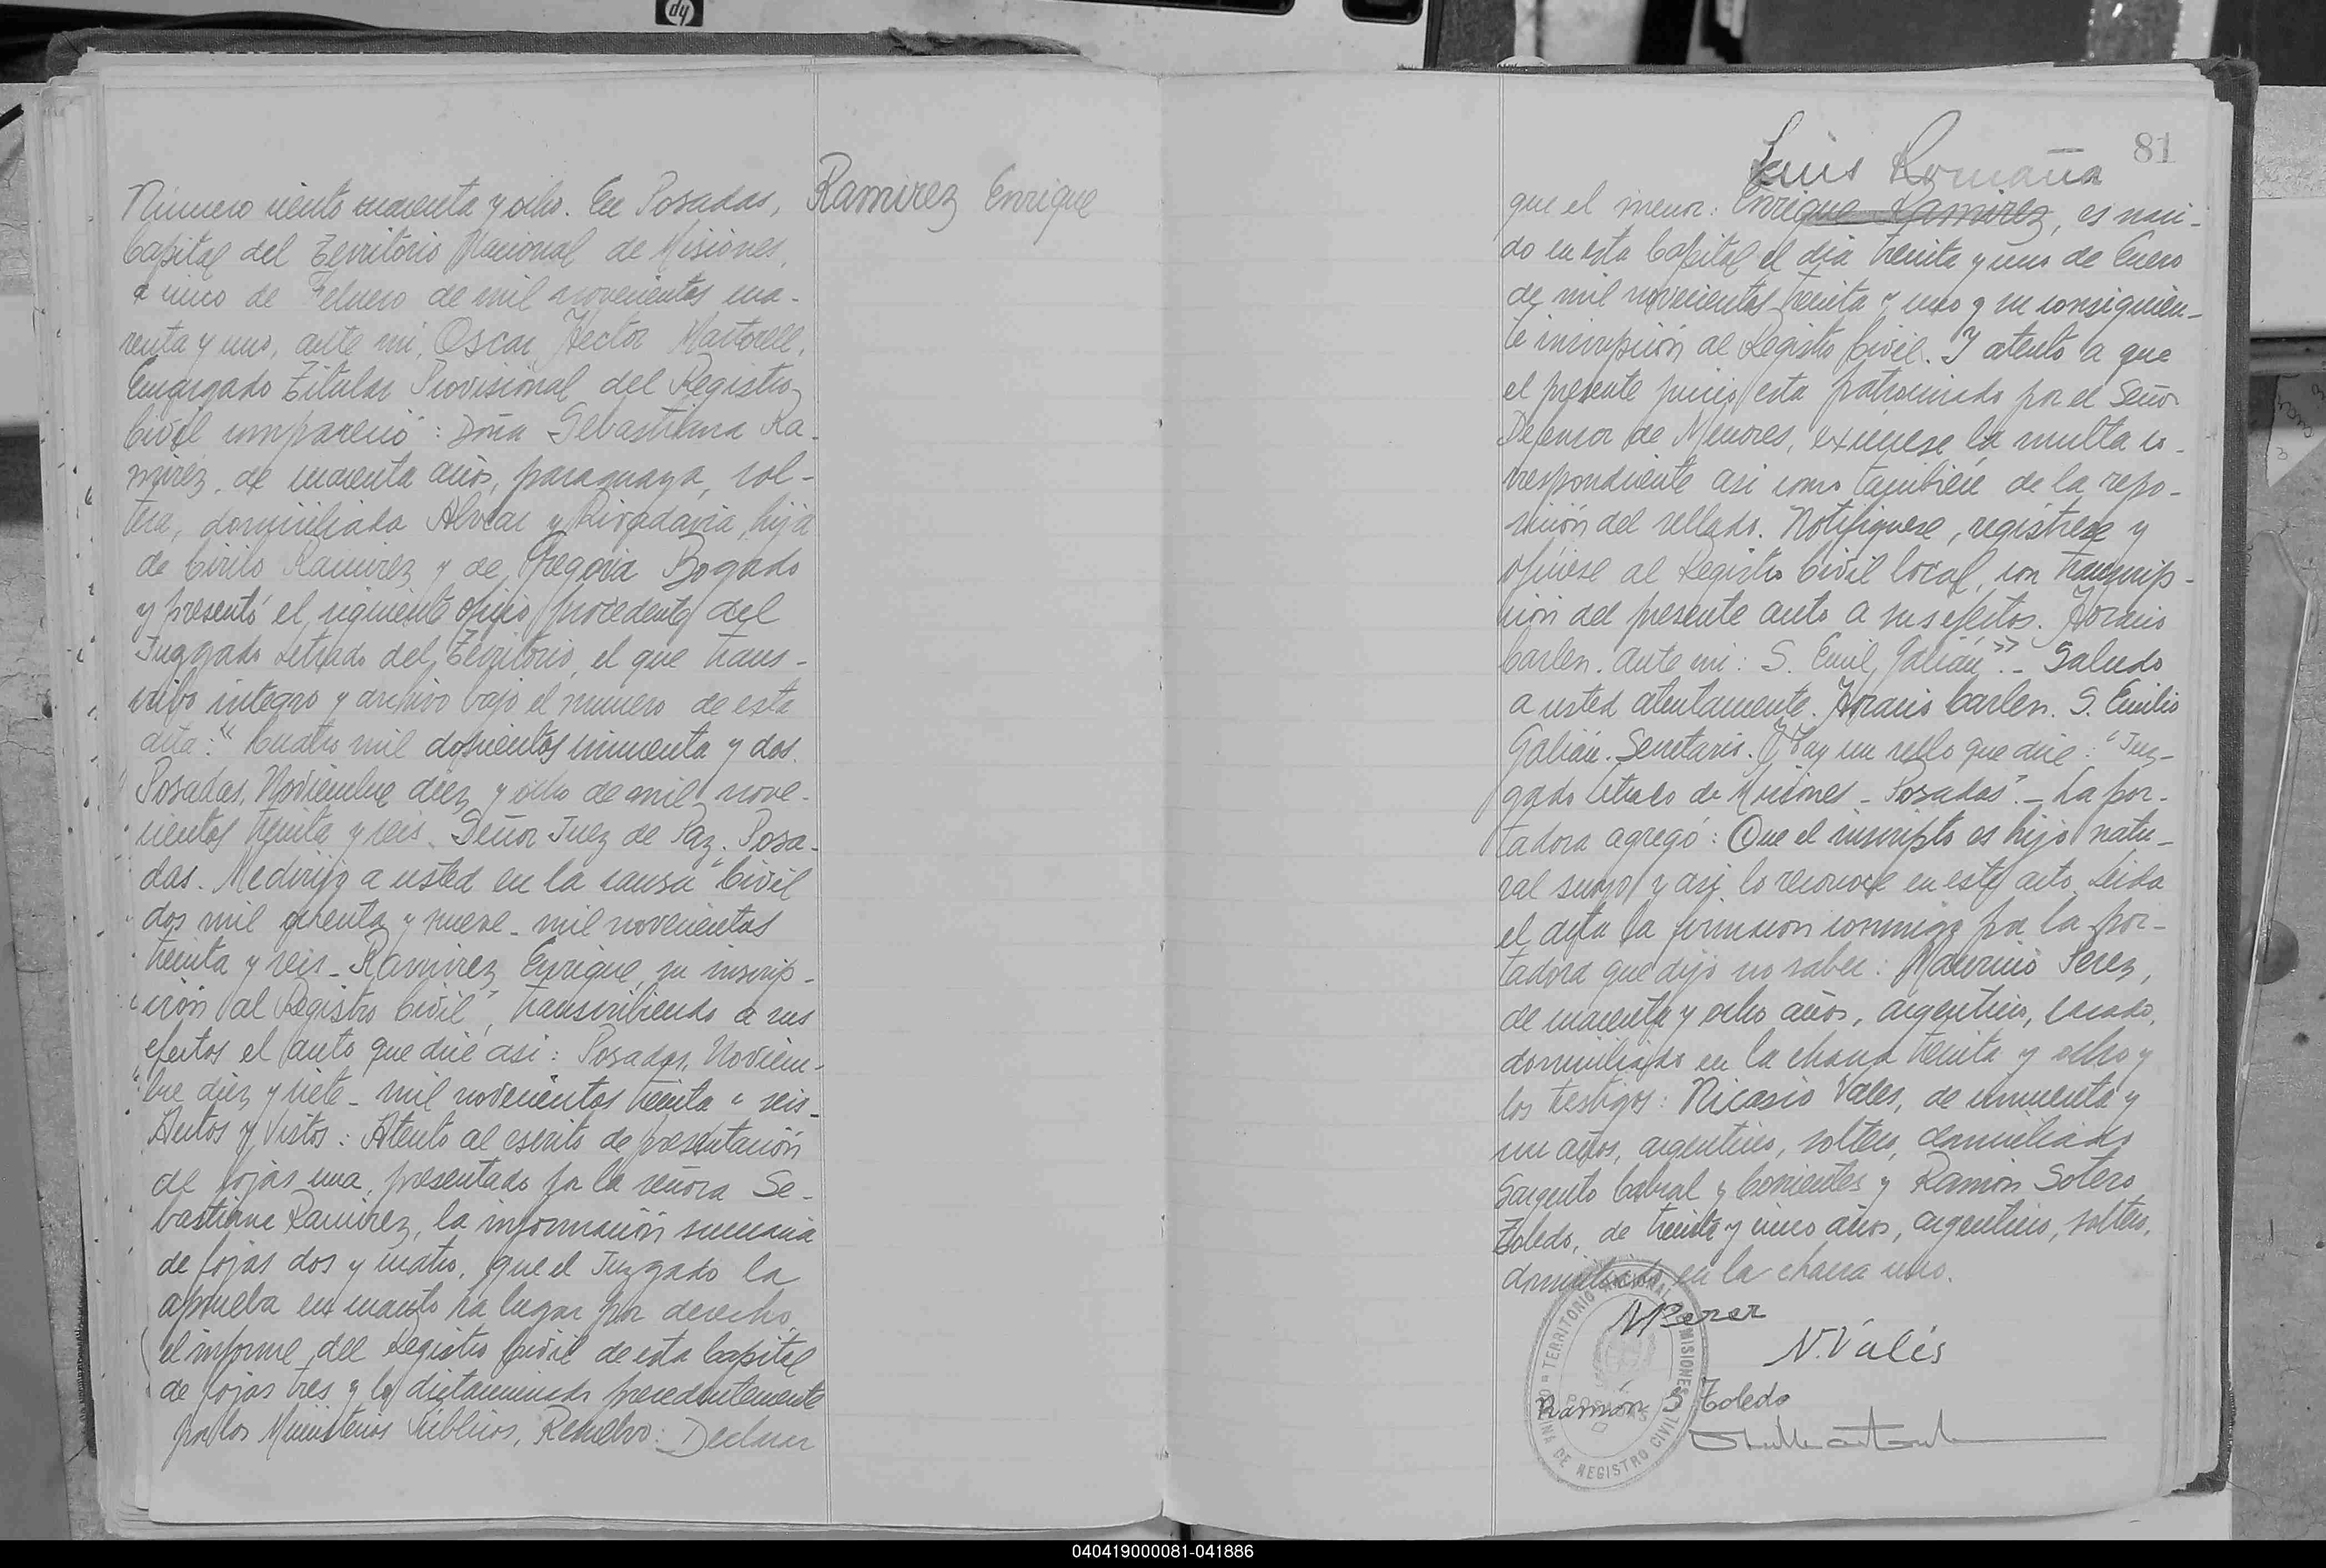 Número ciento cuarenta y ocho. En Posadas,
Capital del Territorio Nacional de Misiones,
a cinco de Febrero de mil novecientos cua-
renta y uno, ante mi, Oscar Hector Martorell,
Encargado Titular Provisional del Registro
Civil compareció: Doña Sebastiana Ra-
mirez, de cuarenta años, paraguaya, sol-
tera, domiciliada Alvear y Rivadavia, hija
de Cirilo Ramirez y de Gregoria Bogado
y presentó el siguiente oficio procedente del
Juzgado Letrado del Territorio, el que trans-
cribo integro y archivo bajo el número de esta
acta: "Cuatro mil doscientos cincuenta y dos.
Posadas, Noviembre diez y ocho de mil nove-
cientos treinta y seis. Señor Juez de Paz. Posa-
das. Me dirijo a usted en la causa "Civil
dos mil ochenta y nueve - mil novecientos
treinta y seis - Ramirez Enrique, su inscrip-
ción al Registro Civil", transcribiendo a sus
efectos el auto que dice asi: Posadas, Noviem-
bre diez y siete - mil novecientos treinta y seis-
Autos y Vistos: Atento al escrito de presentación
de fojas una, presentado por la señora Se-
bastiana Ramirez, la información sumaria
de fojas dos y cuatro, que el Juzgado la
aprueba en cuanto ha lugar por derecho,
el informe del Registro Civil de esta Capital
de fojas tres y lo dictaminado precedentemente
por los Ministerios Públicos, Resuelvo: Declarar
Ramirez Enrique
81
Luis Romaña
que el menor: Enrique Ramirez, es naci-
do en esta Capital el día treinta y uno de Enero
de mil novecientos treinta y uno y su consiguien-
te inscripción al Registro Civil. Y atento a que
el presente juicio esta patrocinado por el Señor
Defensor de Menores, exímese la multa co-
rrespondiente asi como también de la repo-
sición del sellado. Notifiquese, registrese y
ofíciese al Registro Civil local, con transcrip-
ción del presente auto a sus efectos. Horacio
Carlen. Ante mi: S. Emil Galián". - Saludo
a usted atentamente. Horacio Carlen. S. Emilio
Galián. Secretario. Hay un sello que dice: "Juz-
gado Letrado de Misiones - Posadas". - La por-
tadora agregó: Que el inscripto es hijo natu-
ral suyo y asi lo reconoce en este acto. Leida
el acta la firmaron conmigo por la por-
tadora que dijo no saber: Mauricio Perez,
de cuarenta y ocho años, argentino, casado,
domiciliado en la chacra treinta y ocho y
los testigos: Nicasio Vales, de cincuenta y
un años, argentino, soltero, domiciliado
Sargento Cabral y Corrientes y Ramón Sotero
Toledo, de treinta y cinco años, argentino, soltero,
domiciliado en la chacra uno.
MPerez
N. Valés
Ramón S Toledo
TERRITORIO NACIONAL DE MISIONES
POSADAS
OFICINA DE REGISTRO CIVIL
040419000081-041886
hp